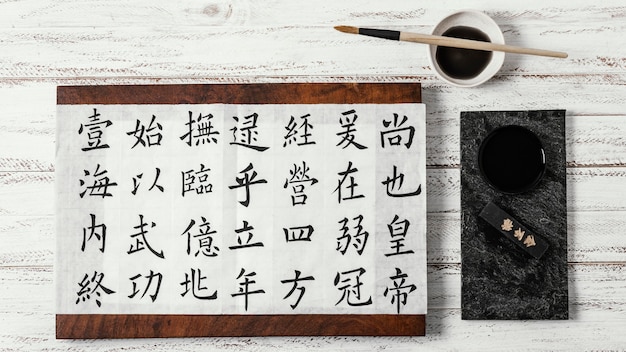 尚也皇帝
爰在弱冠
經營四方
逮乎立年
撫臨億兆
始以武功
壹海内終